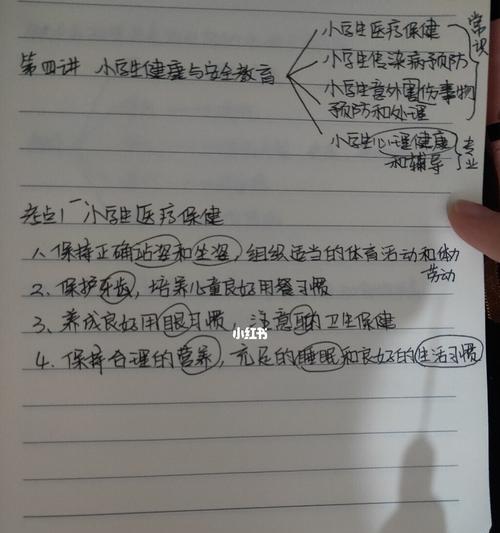 小学生医疗保健
常识
小学生传染病预防
第四讲 小学生健康与安全教育
小学生意外伤害事物
预防和处理
小学生心理健康
和辅导
专业
考点1 小学生医疗保健
1、保持正确站姿和坐姿,组织适当的体育活动和体力
劳动
2、保护牙齿,培养儿童良好用餐习惯
3、养成良好用眼习惯,注意耳的卫生保健
小红书
4、保持合理的营养,充足的睡眠和良好的生活习惯